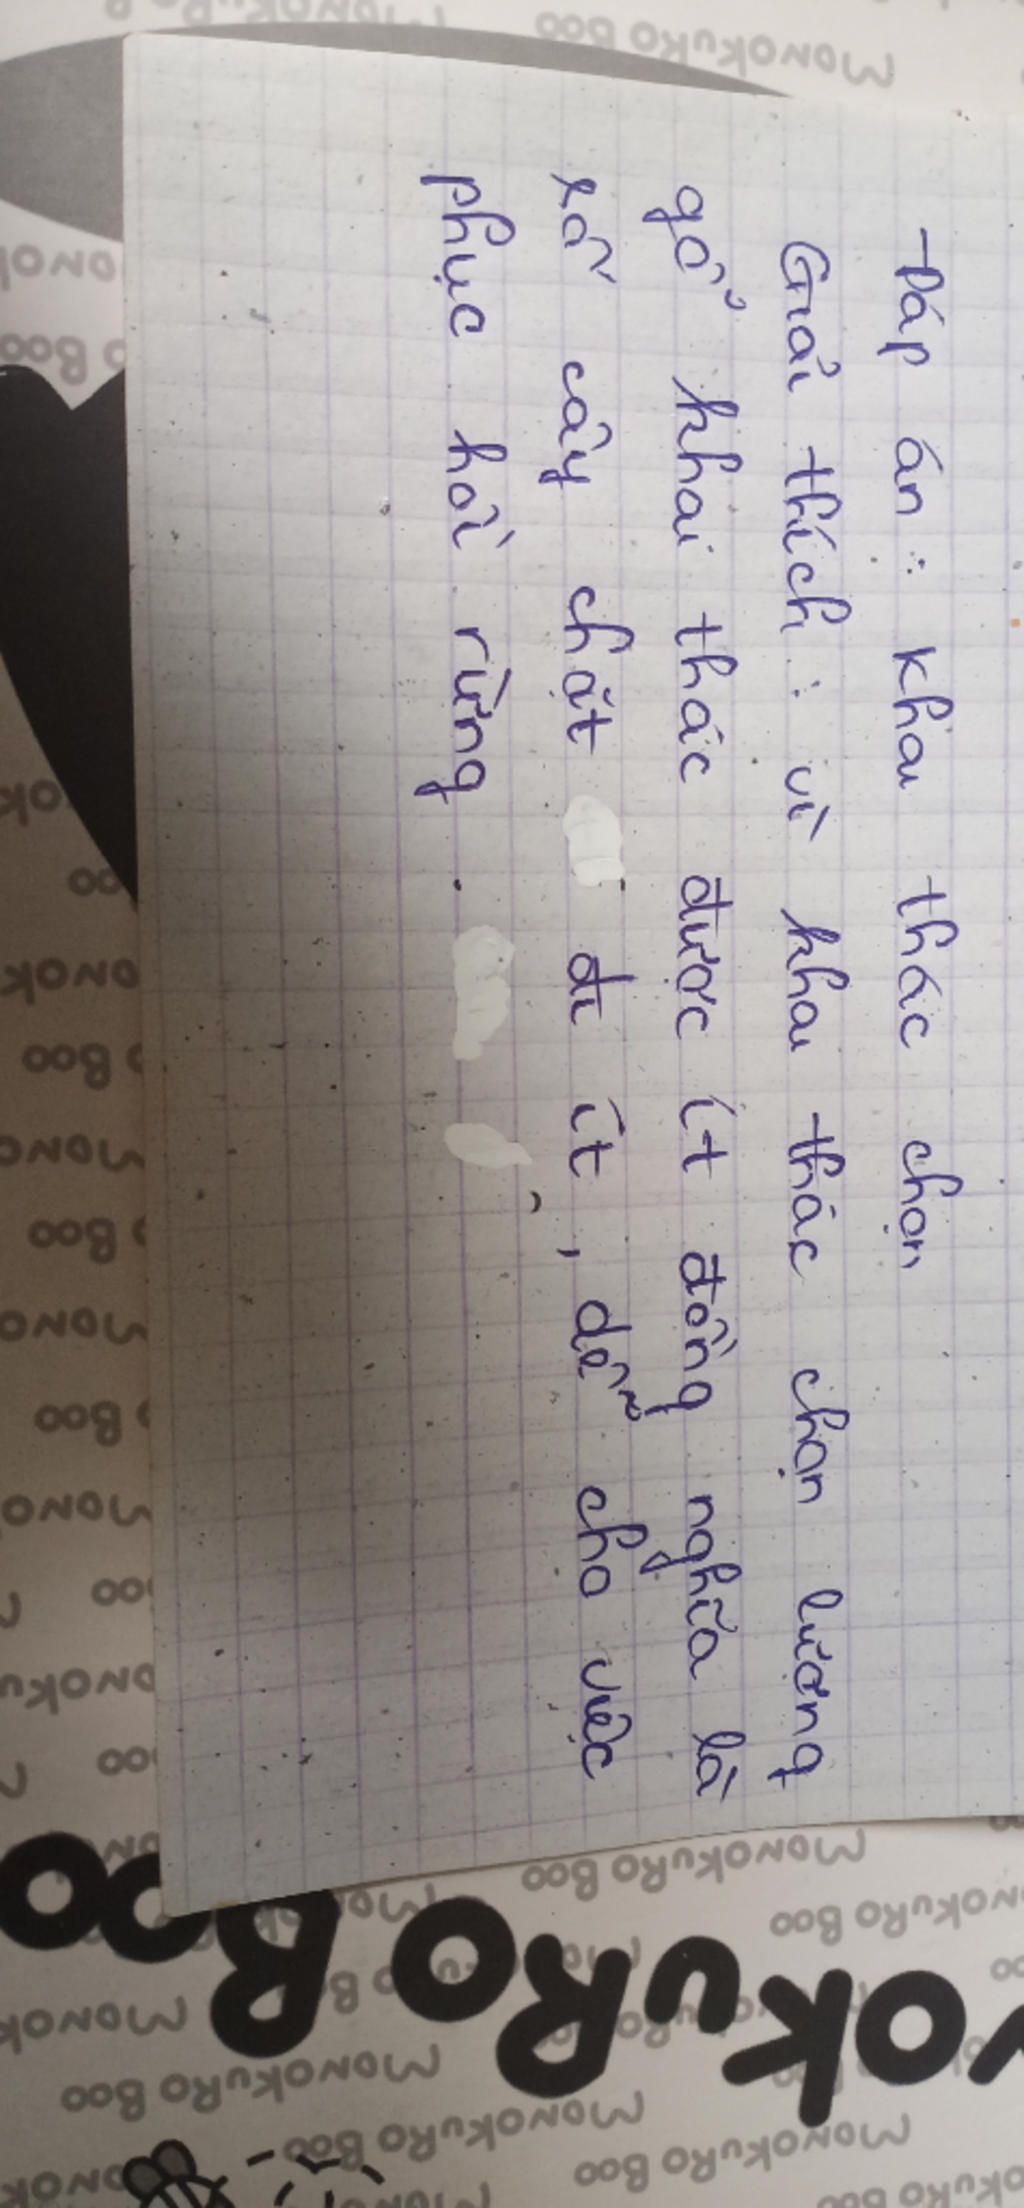 Đáp án : Khai thác chọn
Giải thích : vì khai thác chọn lượng
gổ khai thác được ít đồng nghĩa là
số cây chặt đi ít , dễ cho việc
phục hồi rừng .
MONOKURO BOO